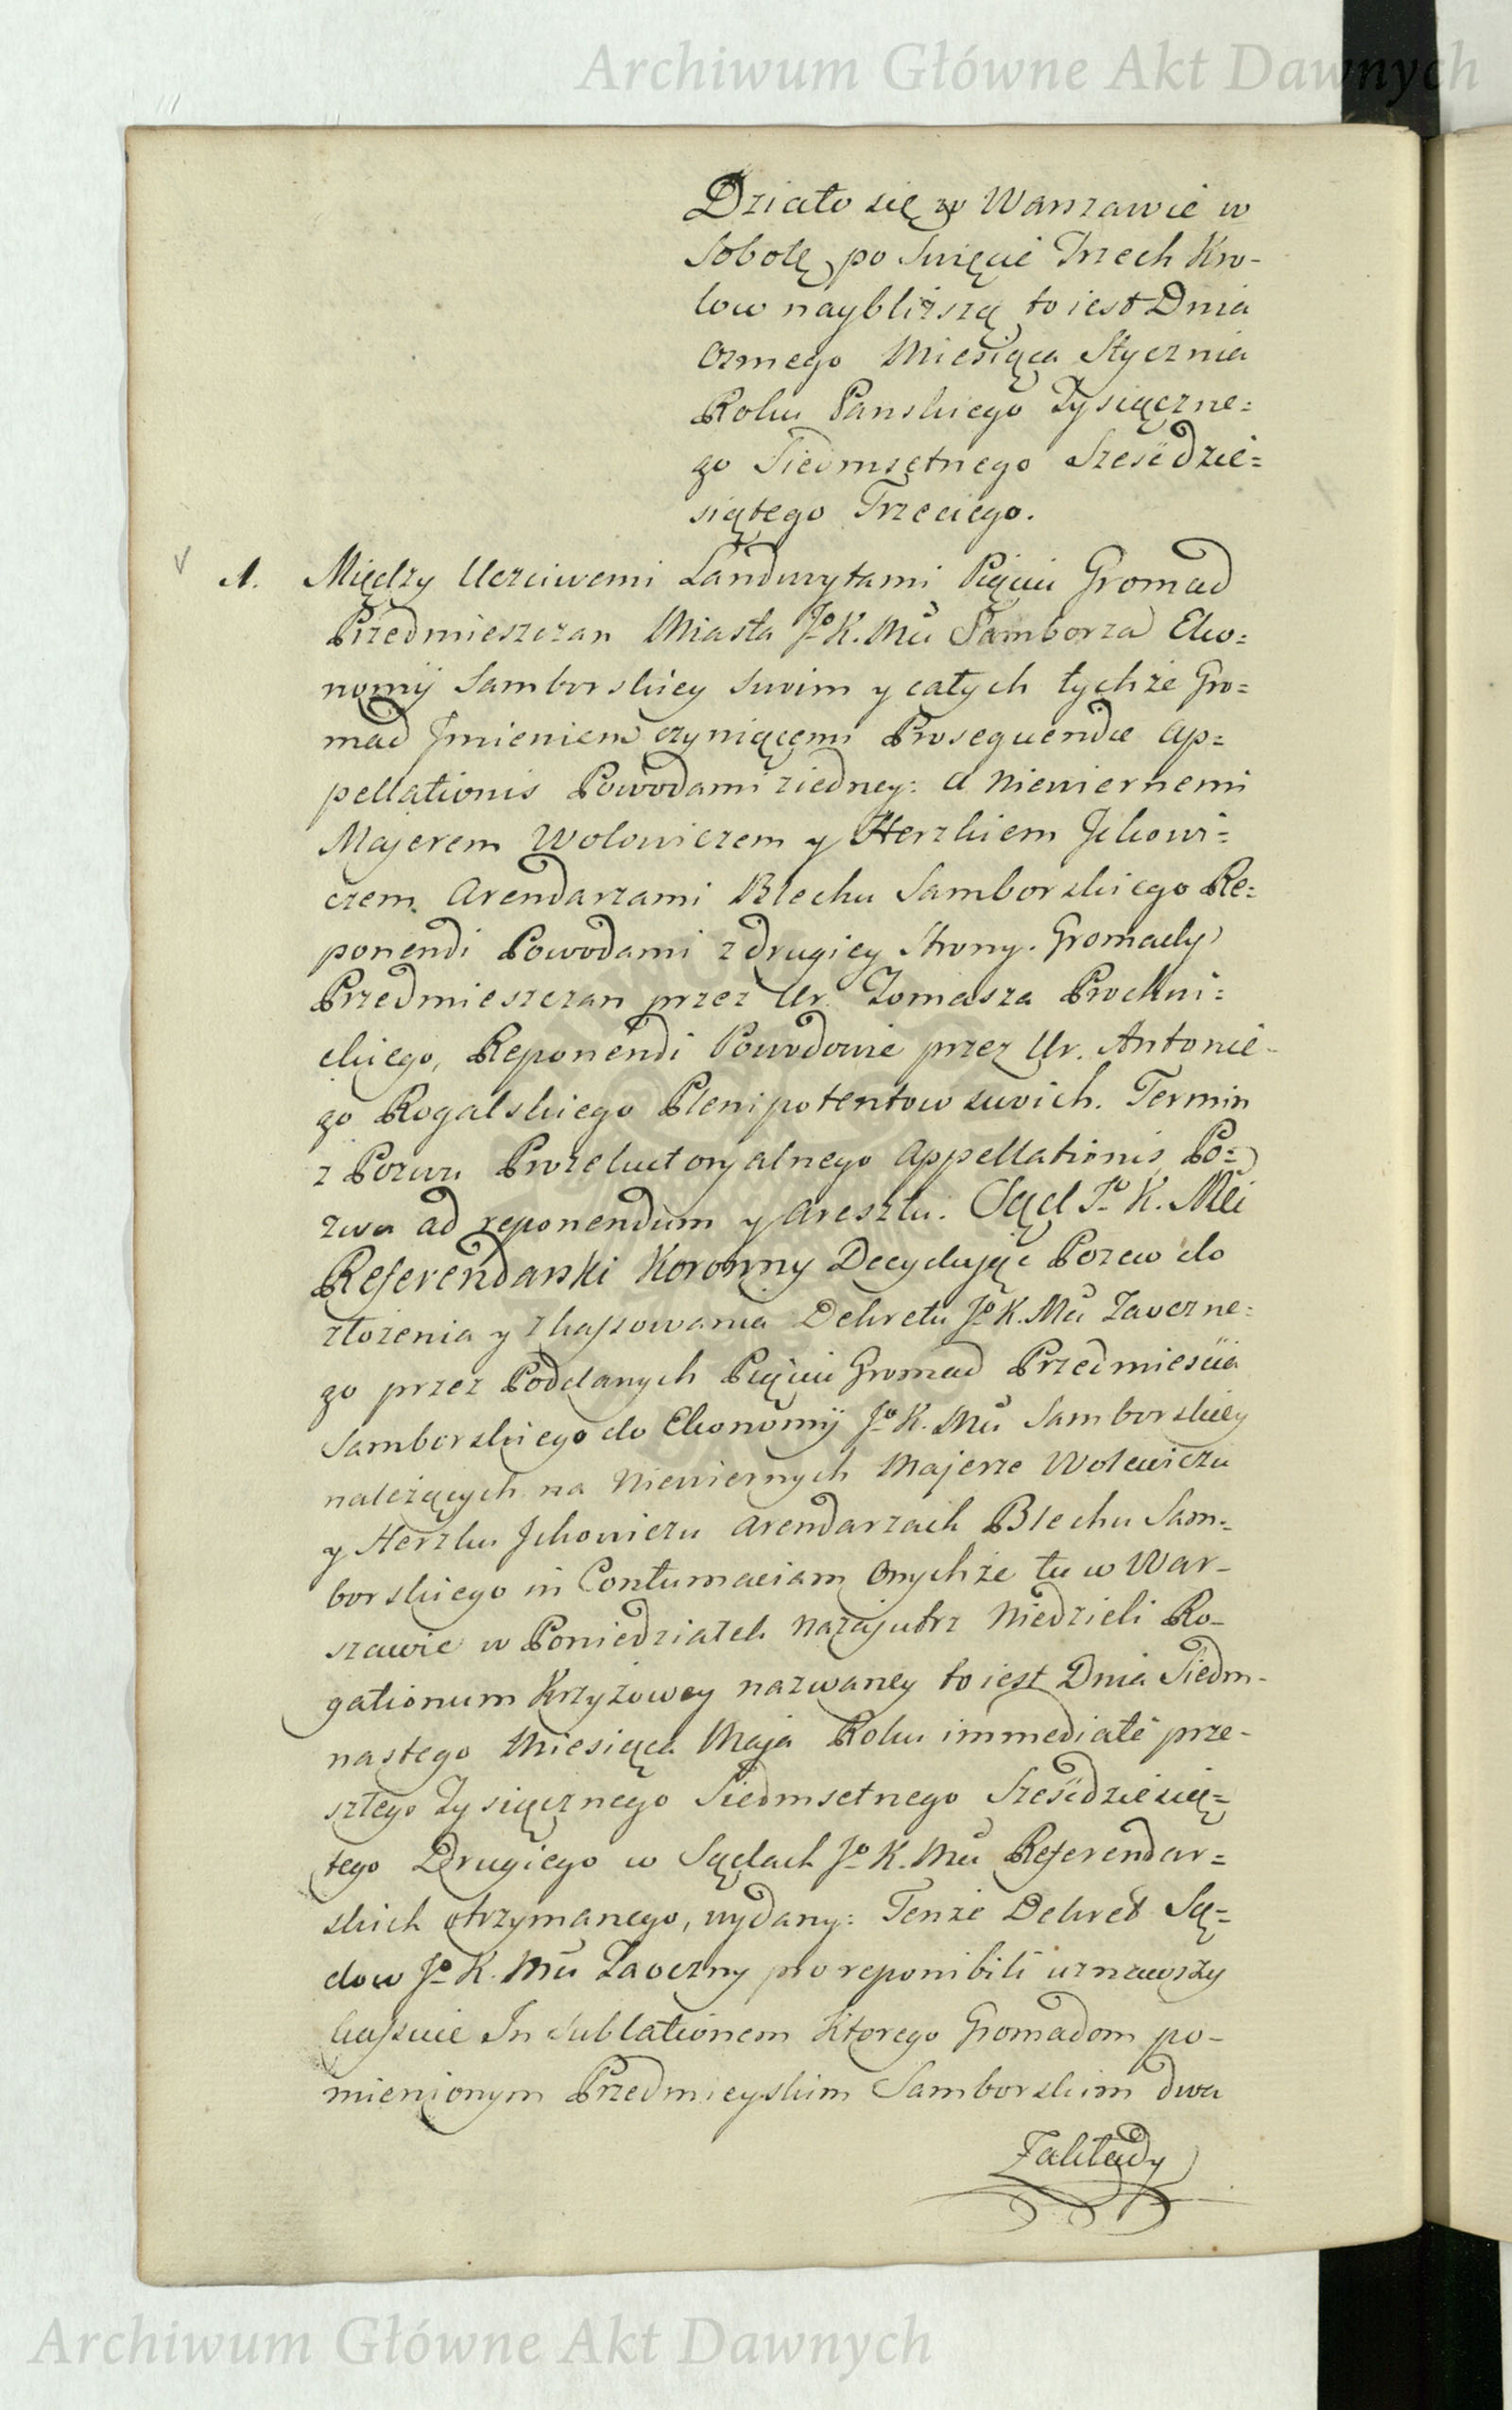 Archiwum Główne Akt Dawnych
Działo się w Warszawie w
Sobotę po Swięcie Trzech Kro-
low naybliższą to iest Dnia
Osmego Miesiąca Stycznia
Roku Panskiego Tysiączne=
go Siedmsętnego Szescdzie=
siątego Trzeciego.
1. Między Uczciwemi Landwytami Pięciu Gromad
Przedmieszczan Miasta Jo K. Mci Samborza Eko=
nomij Samborskiey swoim y całych tychże Gro=
mad Jmieniem czyniącemi Prosequendæ Ap=
pellationis Powodami z iedney: a Niewiernemi
Majerem Wolowiczem y Herzkiem Jckowi=
czem Arendarzami Blechu Samborskiego Re=
ponendi Powodami z drugiey Strony. Gromady
Przedmieszczan przez Ur. Tomasza Prochni=
ckiego, Reponendi Powodowie przez Ur. Antonie-
go Rogalskiego Plenipotentow swoich. Termin
z Pozwu Prozekuctoryalnego Appellationis, Po=
zwu ad reponendum y Aresztu. Sąd Jo K. Mci
Referendarski Koronny Decydując Pozew do
złożenia y skassowania Dekretu Jo K. Mci Zaoczne=
go przez Poddanych Pięciu Gromad Przedmiescia
Samborskiego do Ekonomij Jo K. Mci Samborskiey
należących na Niewiernych Majerze Wolewiczu
y Herzku Jckowiczu Arendarzach Blechu Sam=
borskiego in Contumaciam Onychże tu w War-
szawie w Poniedziałek nazajutrz Niedzieli Ro-
gationum Krzyżowey nazwaney to iest Dnia Siedm-
nastego Miesiąca Maja Roku immediate prze-
szłego Tysiącznego Siedmsetnego Szescdziesią=
tego Drugiego w Sądach Jo K. Mci Referendar=
skich otrzymanego, wydany: Tenże Dekret Są=
dow Jo K. Mci Zaoczny pro reponibili uznawszy
kassuie In Sublationem Ktorego Gromadom po-
mienionym Przedmieyskim Samborskim dwa
Zakłady
Archiwum Główne Akt Dawnych